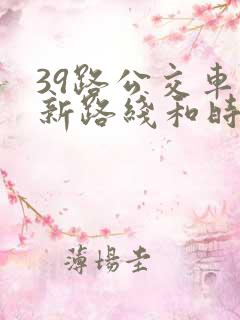 39路公交车
新路綫和時
薄場圭